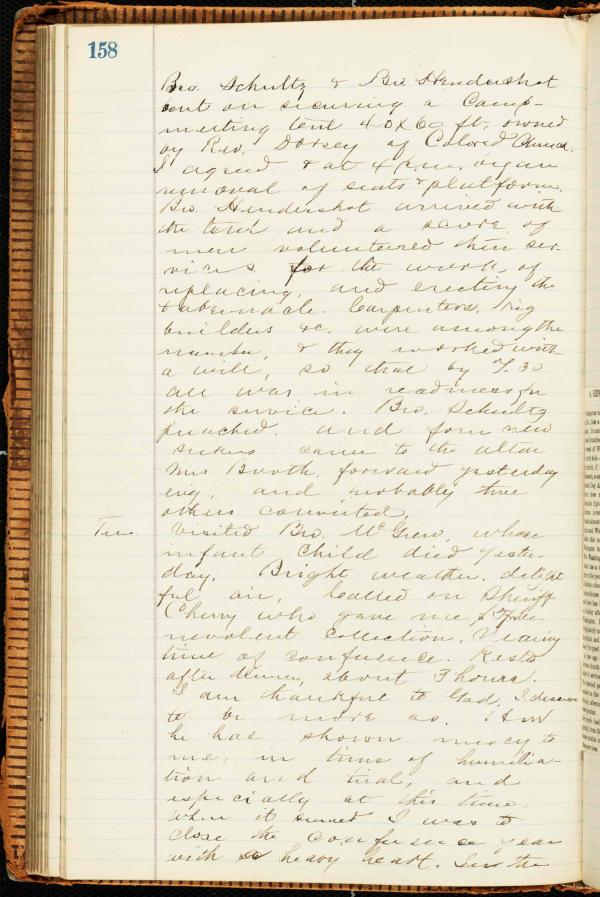 158
Bro. Schultz & Bro. Hendershot
out on securing a Camp-
meeting tent 40x60 ft. owned
by Rev. Dorsey of Colored Church.
I agreed & at 4 p.m. began
removal of seats & platform.
Bro. Hendershot arrived with
the tent and a score of
men volunteered their ser-
vices for the work of
replacing, and erecting the
tabernacle. Carpenters, rig
builders &c. were among the
number, & they worked with
a will, so that by 7.30
all was in readiness for
the service. Bro. Schultz
preached. and four new
seekers came to the altar
Mrs Booth, forward yesterday
evg, and probably three
others converted.
Tues. Visited Bro. McGrew, whose
infant child died yester-
day. Bright weather, delight
ful air, Called on Sheriff
Cherry who gave me for be-
nevolent collection. Nearing
time of conference. Rests
after dinner, about 3 hours.
I am thankful to God, I desire
to be more so. How
he has shown mercy to
me, in time of humilia-
tion and trial, and
especially at this time,
when it seemed I was to
close the conference year
with a heavy heart. In the